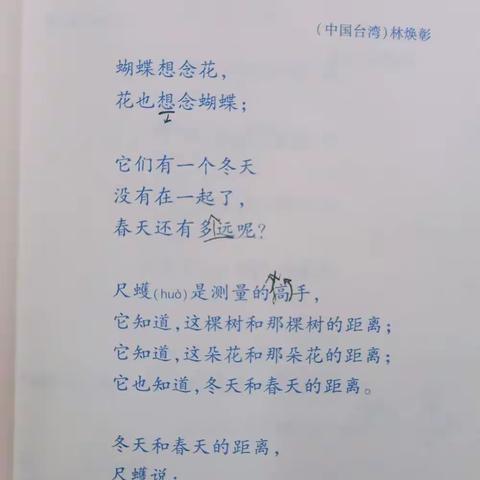 (中国台湾)林焕彰
蝴蝶想念花,
花也想念蝴蝶;
它们有一个冬天
没有在一起了,
春天还有多远呢?
尺蠖(huò)是测量的高手,
它知道,这棵树和那棵树的距离;
它知道,这朵花和那朵花的距离;
它也知道,冬天和春天的距离。
冬天和春天的距离,
尺蠖说: